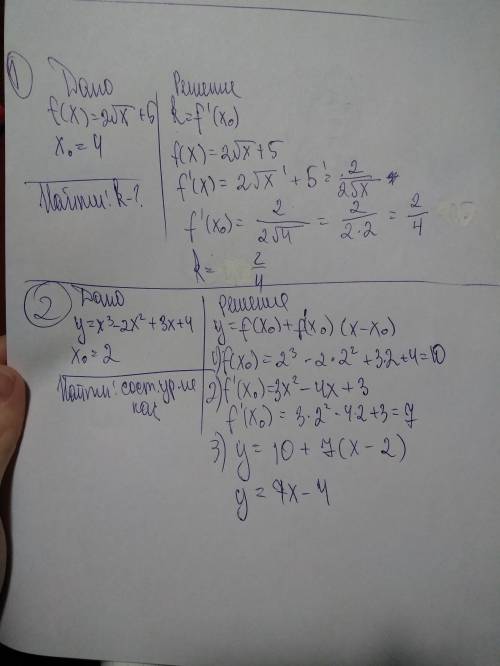 1
Дано
f(x)=2√x+5
x₀=4
Найти: k-?
Решение
k=f'(x₀)
f(x)=2√x+5
f'(x)=2√x'+5'=2/2√x
f'(x₀)=2/2√4=2/2·2=2/4
k=2/4
2
Дано
y=x³-2x²+3x+4
x₀=2
Найти: сост ур-ие
кас
решение
y=f(x₀)+f'(x₀)(x-x₀)
1) f(x₀)=2³-2·2²+3·2+4=10
2) f'(x₀)=3x²-4x+3
f'(x₀)=3·2²-4·2+3=7
3) y=10+7(x-2)
y=7x-4